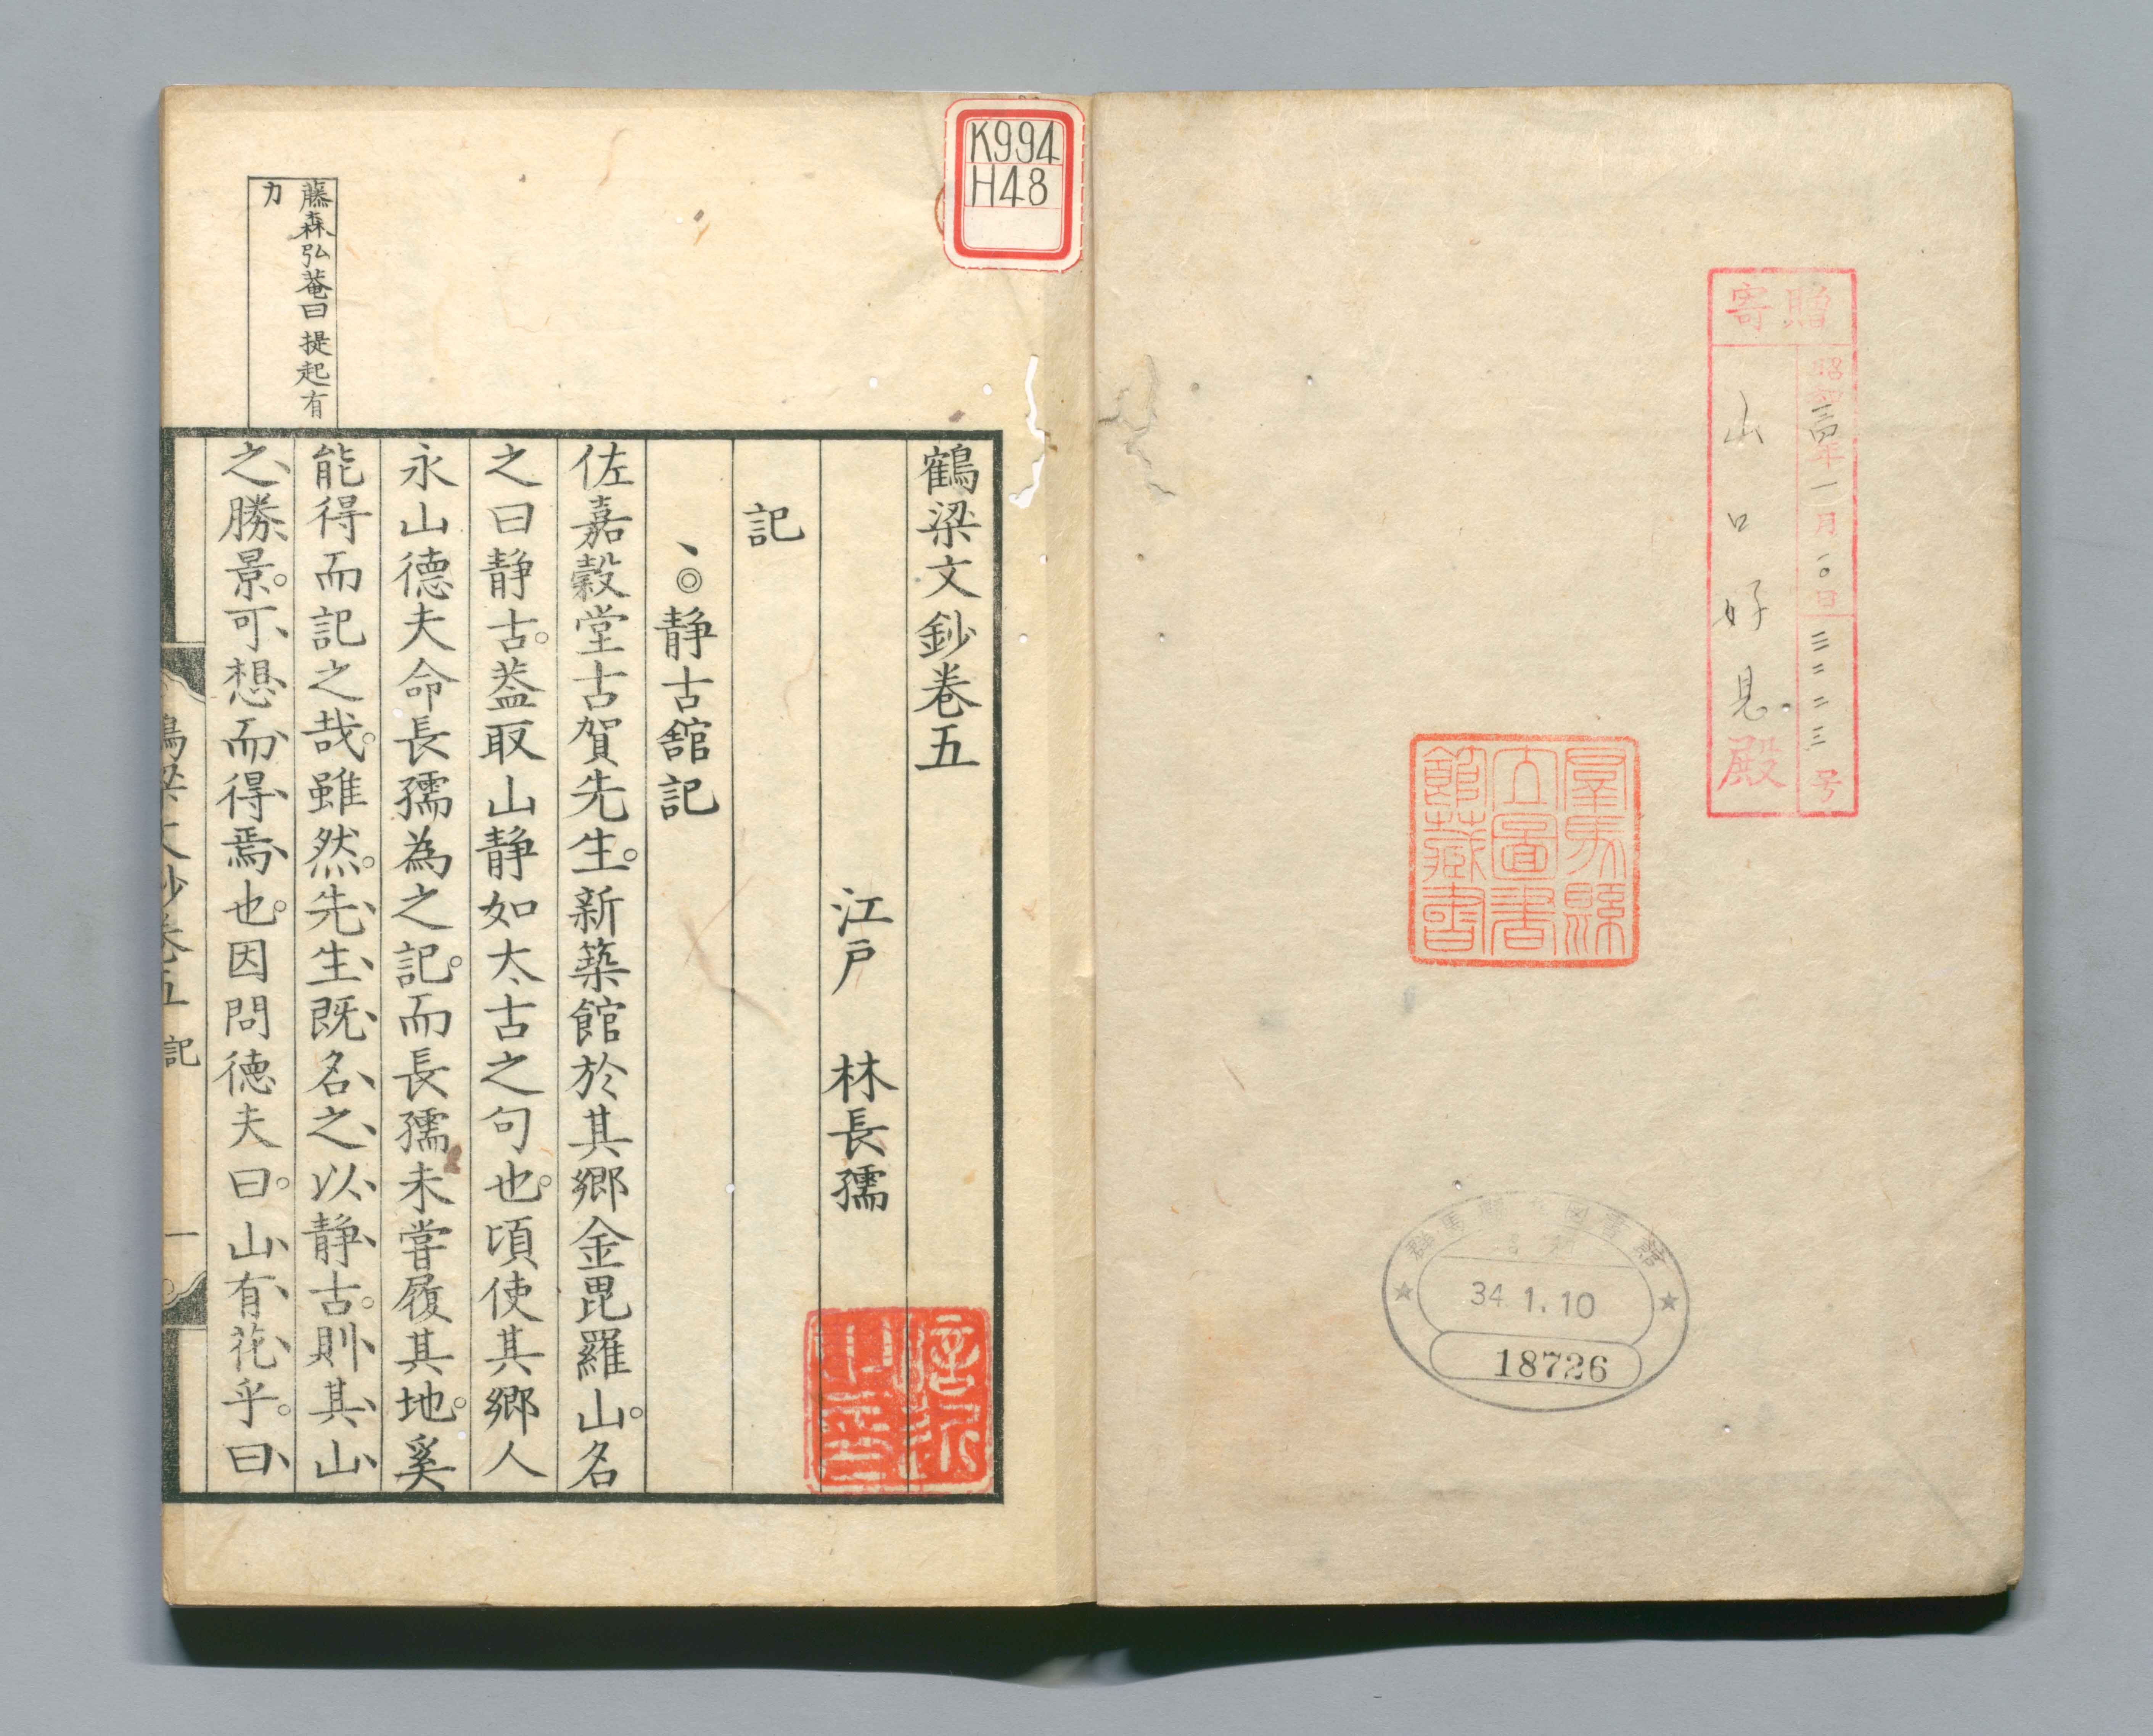 寄贈
昭和三四年一月一〇日
三二二三号
山口好見殿
群馬縣
立圖書
館藏書
34.1.10
18726
K994
H48
鶴梁文鈔巻五
江戸 林長孺
記
、◎静古舘記
佐嘉穀堂古賀先生。新築館於其郷金毘羅山。名
之曰静古。葢取山静如太古之句也。頃使其郷人
永山德夫命長孺為之記。而長孺未嘗履其地。奚
能得而記之哉。雖然。先生既名之以静古。則其山
之勝景。可想而得焉也。因問德夫曰。山有花乎。曰
藤森弘菴曰提起有
力
鶴梁文鈔巻五 記 一